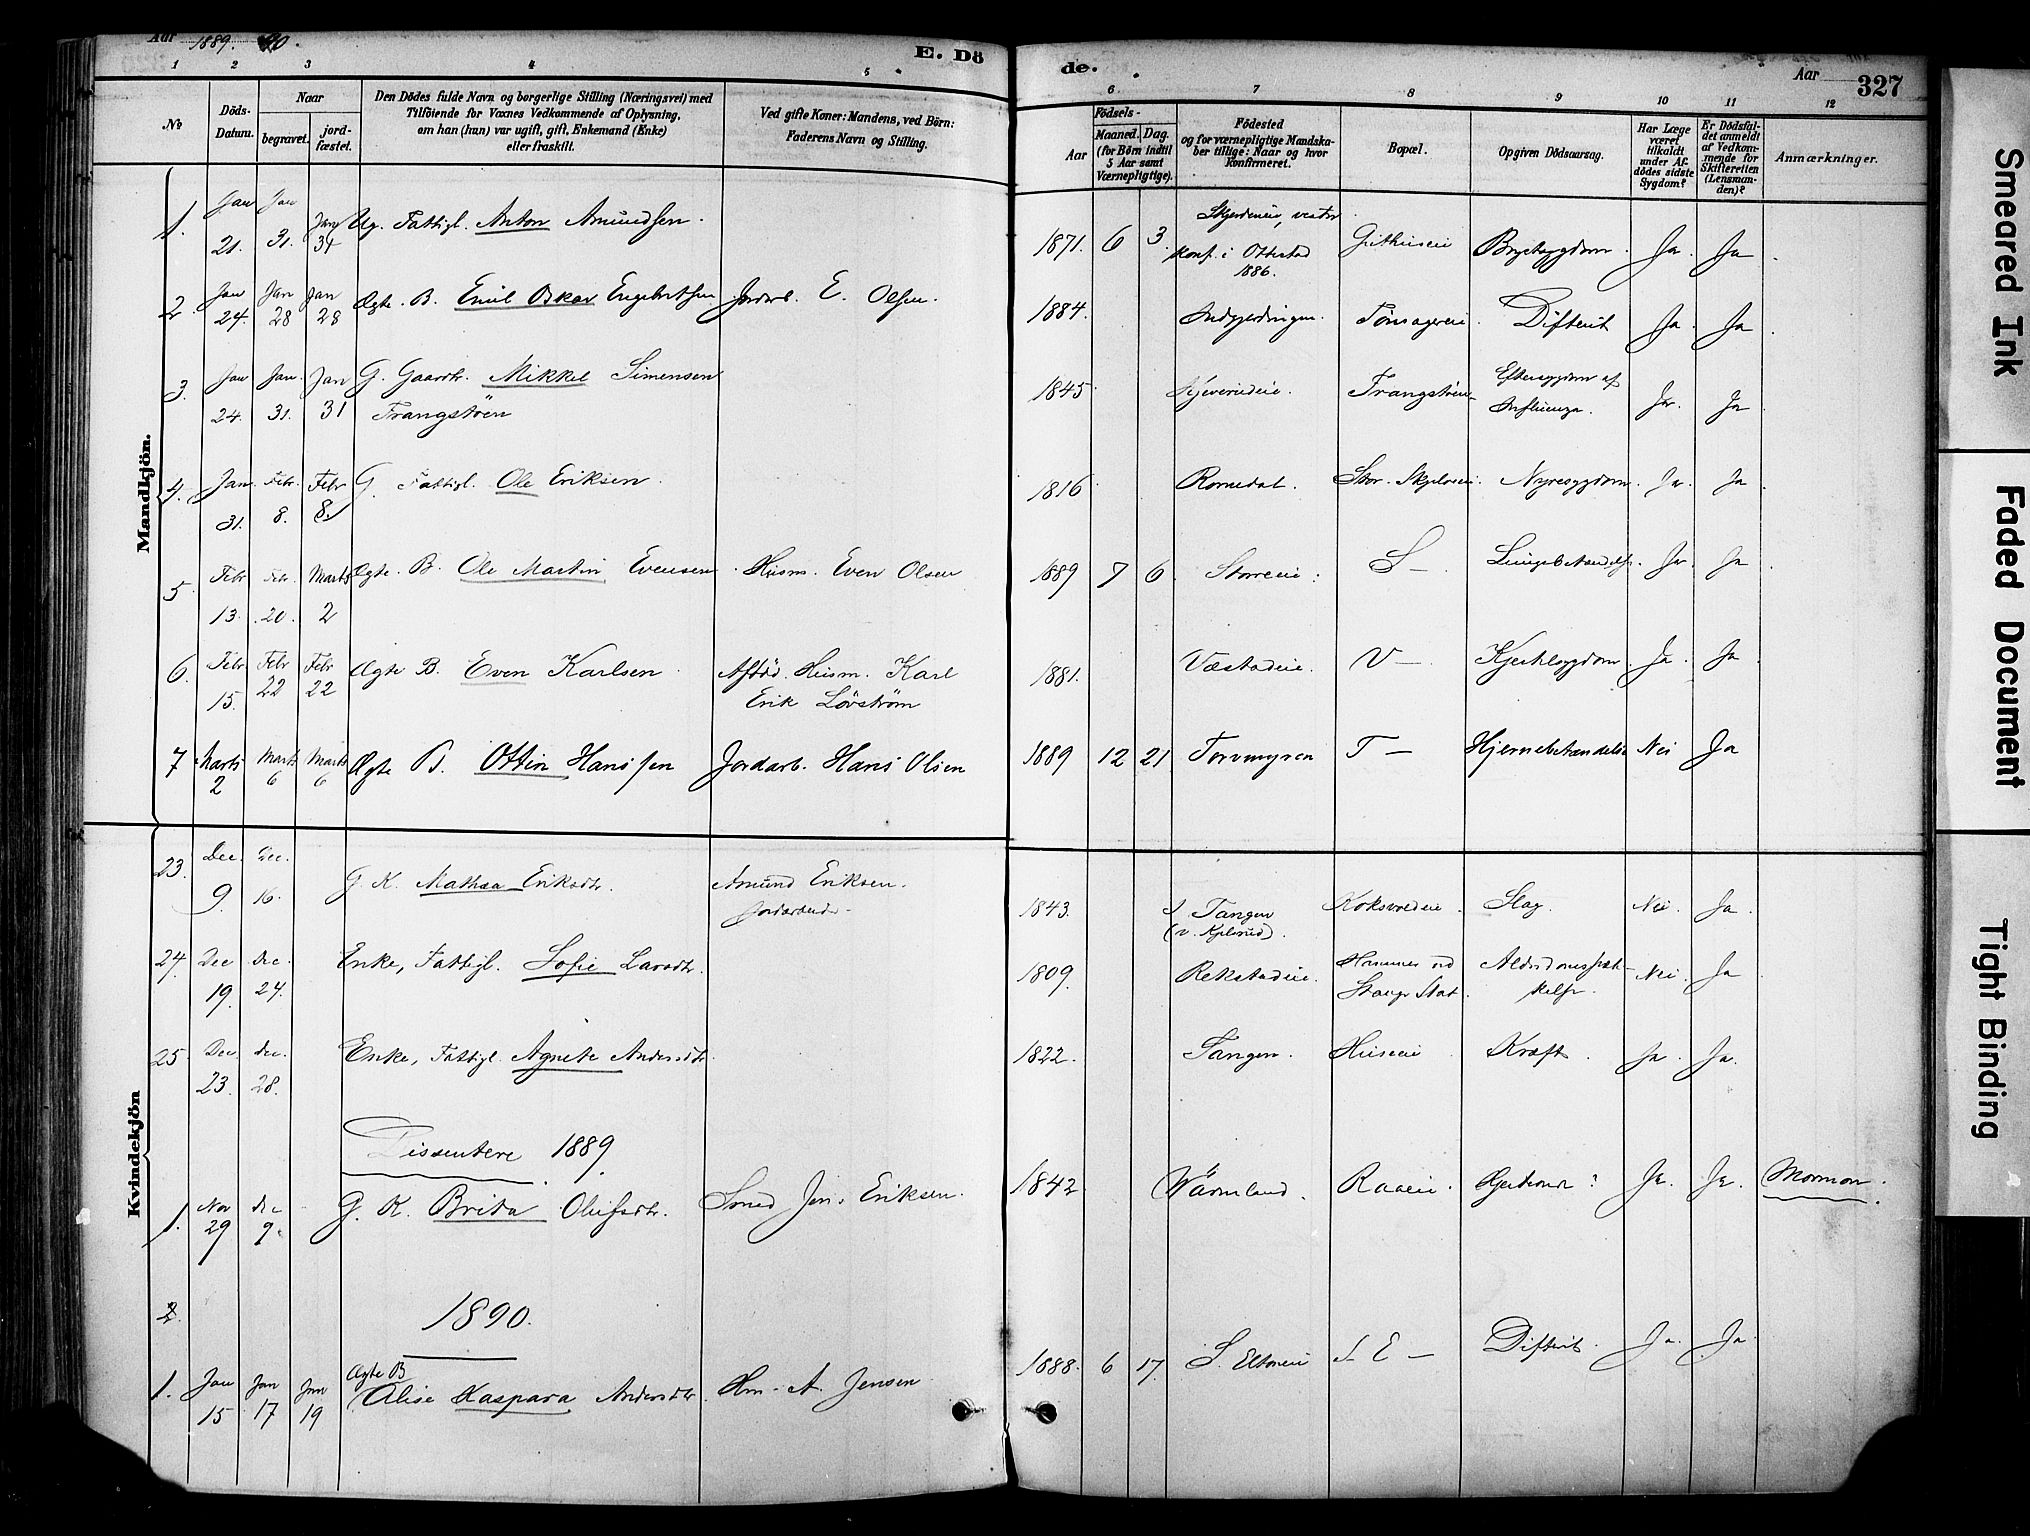 Aar 1889. 90.
E. Dö
de.
Aar
327
1 2 3 4 5 6 7 8 9 10 11 12
No
Döds-
Datum.
Naar
begravet.
jord-
fæstet.
Den Dödes fulde Navn og borgerlige Stilling (Næringsvei) med
Tilföiende for Voxnes Vedkommende af Oplysning,
om han (hun) var ugift, gift, Enkemand (Enke)
eller fraskilt.
Ved gifte Koner: Mandens, ved Börn:
Faderens Navn og Stilling.
Födsels-
Aar
Maaned. Dag.
(for Börn indtil
5 Aar samt
Værnepligtige).
Födested
og for værnepligtige Mandska-
ber tillige: Naar og hvor
Konfirmeret.
Bopæl.
Opgiven Dödsaarsag.
Har Læge
været
tilkaldt
under Af-
dödes sidste
Sygdom?
Er Dödsfal-
det anmeldt
af Vedkom-
mende for
Skifteretten
(Lensman-
den)?
Anmærkninger.
Mandkjön.
1. Jan 21. Jan 31. Ug. Fattigl. Anton Amundsen. 1871. 6 3. konf. i Ottestad 1886. Brystsygdom. Ja. Ja.
2. Jan 24. Jan 28 Jan 28 Ægte. B. Emil Oskar Engebretsen Jordarb. E. Olsen. 1884. Tønsagereie. Difterit Ja. Ja
3. Jan 24. Jan. 31. Jan 31 G. Gaardbr. Mikkel Simensen
Frangstöen 1845. Frangstöen Eftersygdom af
Influenza. Ja. Ja
4. Jan. 31. Febr. 8. Febr 8. G. Fattigl. Ole Eriksen. 1816 Romedal. Nyresygdom. Ja. Ja
5. Febr 13. Febr. 20. Marts 2 Ægte. B. Ole Martin Evensen. Husm. Even Olsen 1889 7 6 S— Lungebetændelse. Ja. Ja
6. Febr 15. Febr 22 Febr 22 Ægte B. Even Karlsen. Afdöd. Husm. Karl
Erik Lövström 1881. Væstadeie. V— Kjertelsygdom. Ja. Ja
7 Marts 2 Marts 6 Marts 6 Ægte B. Ottin Hanssen Jordarb. Hans Olsen 1889 12 21 Torvmyren T— Hjernebetændelse Nei Ja
Kvindekjön
23. Dec. 9. Dec. 16. G. K. Mathea Eriksdtr. Amund Eriksen.
Jordarbeider 1843. Tangen Koksvoldeie. Slag. Nei. Ja.
24. Dec 19. Dec. 24. Enke, Fattigl. Sofie Larsdtr. 1809. Rekstadeie. Hammer ved
Stange Stat. Alderdomssvæk-
kelse. Nei. Ja
25. Dec. 23. Dec. 28. Enke, Fattigl. Agnete Andersdtr. 1822. Tangen. Huseie Kræft. Ja. Ja.
Dissentere 1889.
1. Nov 29 Dec 9. G. K. Brita Olufsdtr. Smed Jens Eriksen. 1842 Wärmland. Raaeie. Ja. Ja. Mormon.
2. 1890.
1. Jan 15 Jan 17 Jan 19 Ægte B
Alise Kaspara Andersdtr. Hm. A. Jensen 1888. 6 17. S. Eltoneie S. E— Difterit. Ja. Ja.
Smeared Ink
Faded Document
Tight Binding